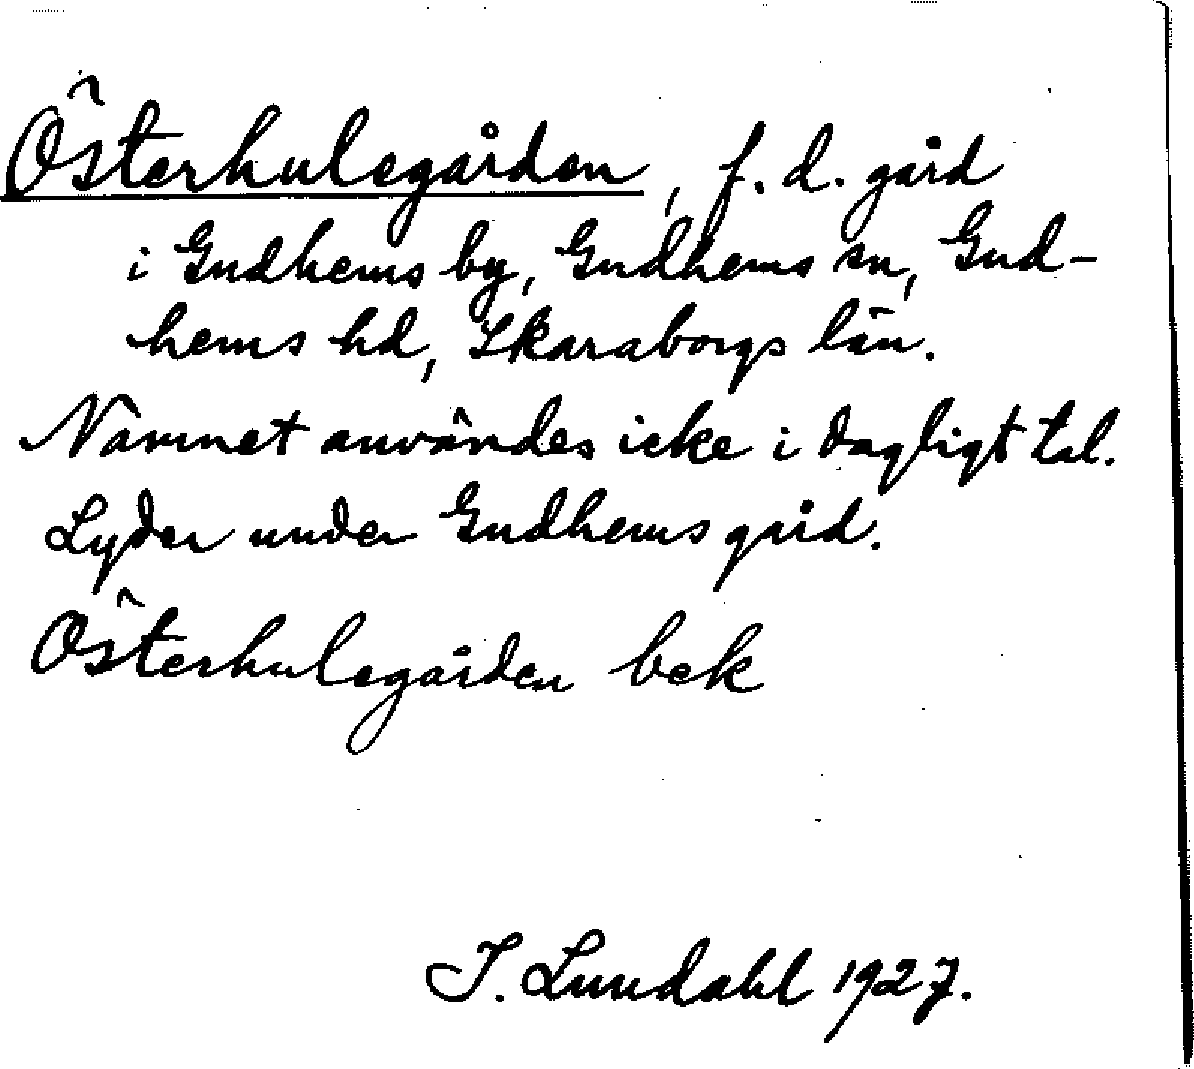 Österhulegården, f. d. gård
i Gudhems by, Gudhems sn, Gud-
hems hd, Skaraborgs län.
Namnet användes icke i dagligt tal.
Lyder under Gudhems gård.
Österhulegården bek
I. Lundahl 1927.